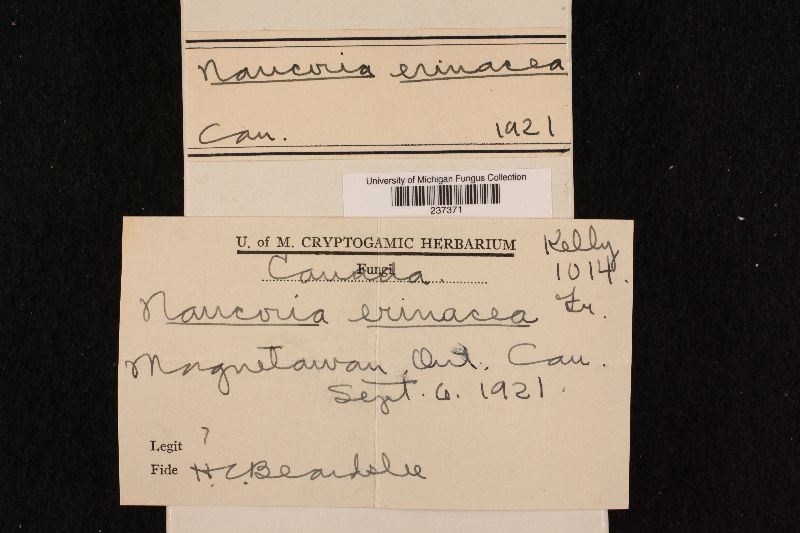 Naucoria erinacea
Can. 1921
University of Michigan Fungus Collection
237371
U. of M. CRYPTOGAMIC HERBARIUM
Kelly
1014.
Fungi
Canada.
Naucoria erinacea Fr.
Magnetawan, Ont. Can.
Sept. 6. 1921.
Legit ?
Fide H.C. Beardslee